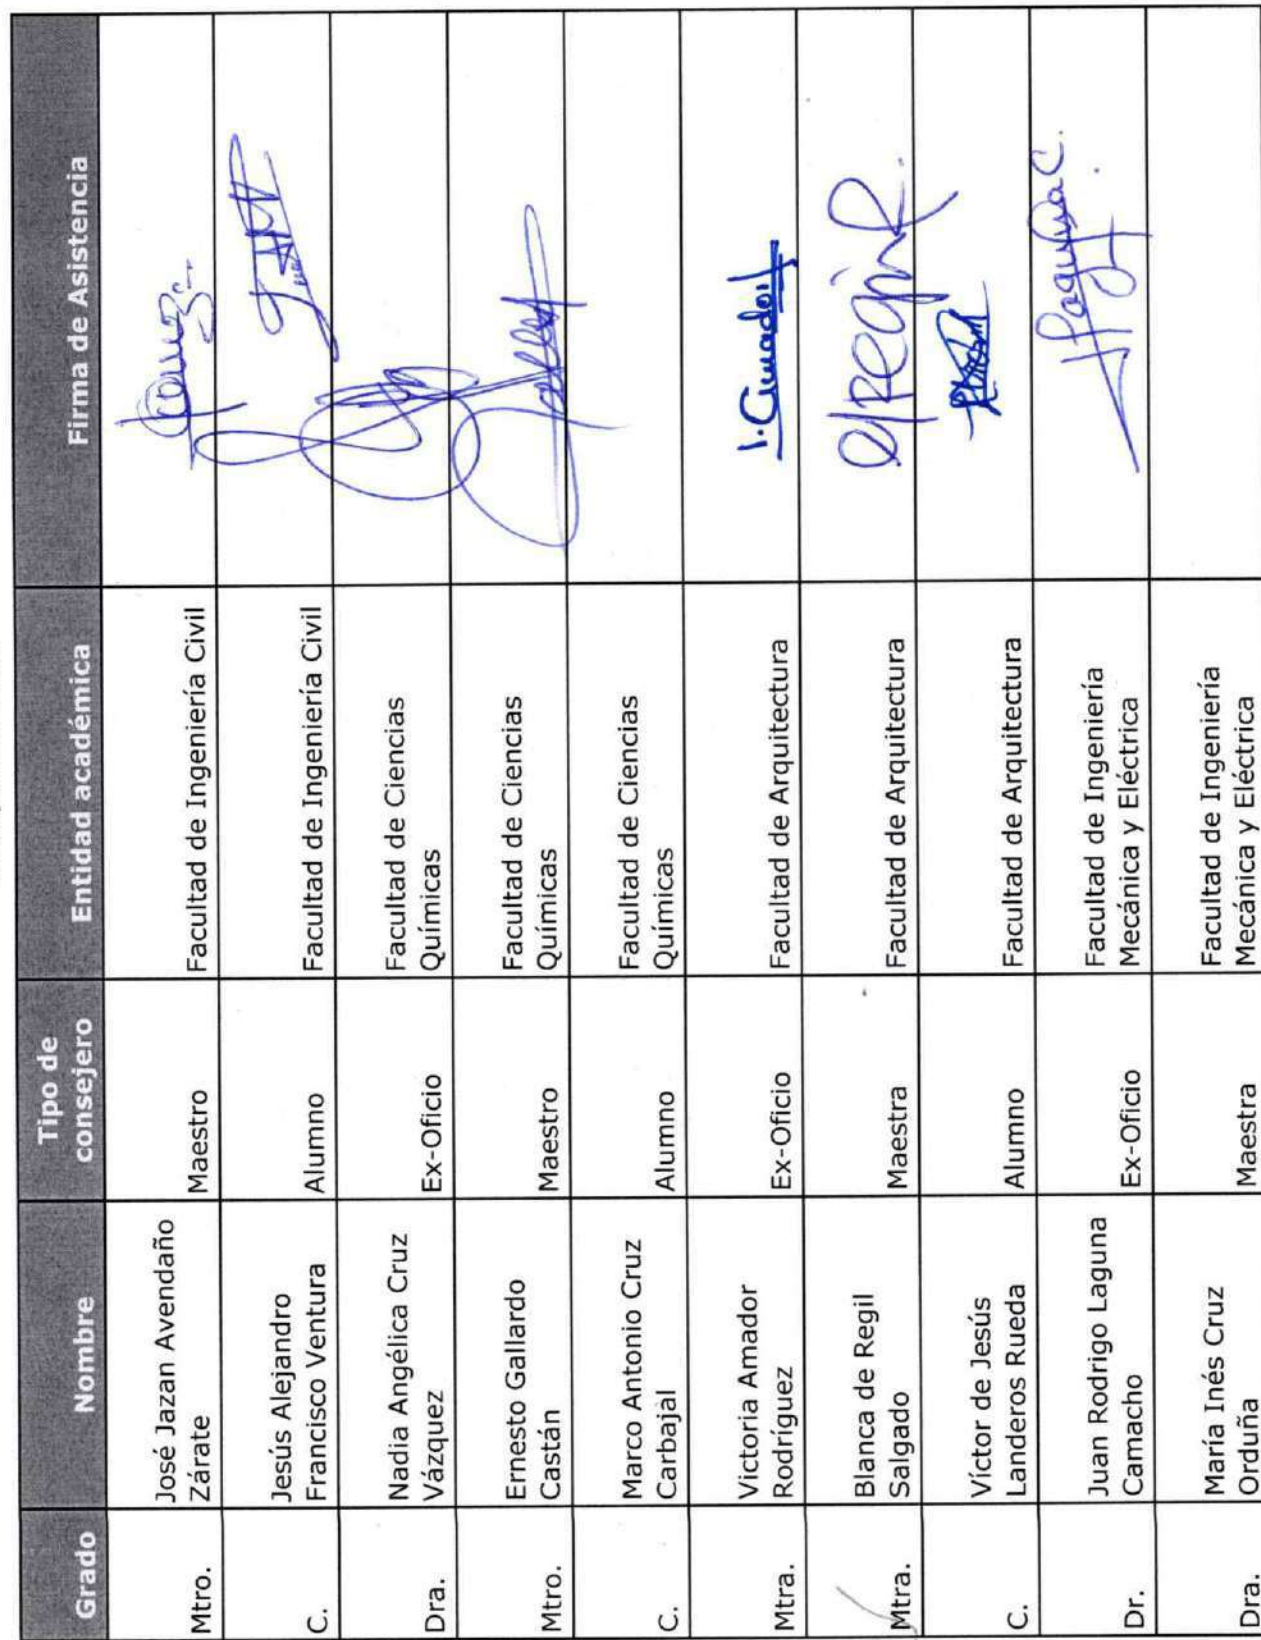 Grado Nombre Tipo de consejero Entidad académica Firma de Asistencia
Mtro. José Jazan Avendaño Zárate Maestro Facultad de Ingeniería Civil
C. Jesús Alejandro Francisco Ventura Alumno Facultad de Ingeniería Civil
Dra. Nadia Angélica Cruz Vázquez Ex-Oficio Facultad de Ciencias Químicas
Mtro. Ernesto Gallardo Castán Maestro Facultad de Ciencias Químicas
C. Marco Antonio Cruz Carbajal Alumno Facultad de Ciencias Químicas
Mtra. Victoria Amador Rodríguez Ex-Oficio Facultad de Arquitectura
Mtra. Blanca de Regil Salgado Maestra Facultad de Arquitectura
C. Víctor de Jesús Landeros Rueda Alumno Facultad de Arquitectura
Dr. Juan Rodrigo Laguna Camacho Ex-Oficio Facultad de Ingeniería Mecánica y Eléctrica
Dra. María Inés Cruz Orduña Maestra Facultad de Ingeniería Mecánica y Eléctrica